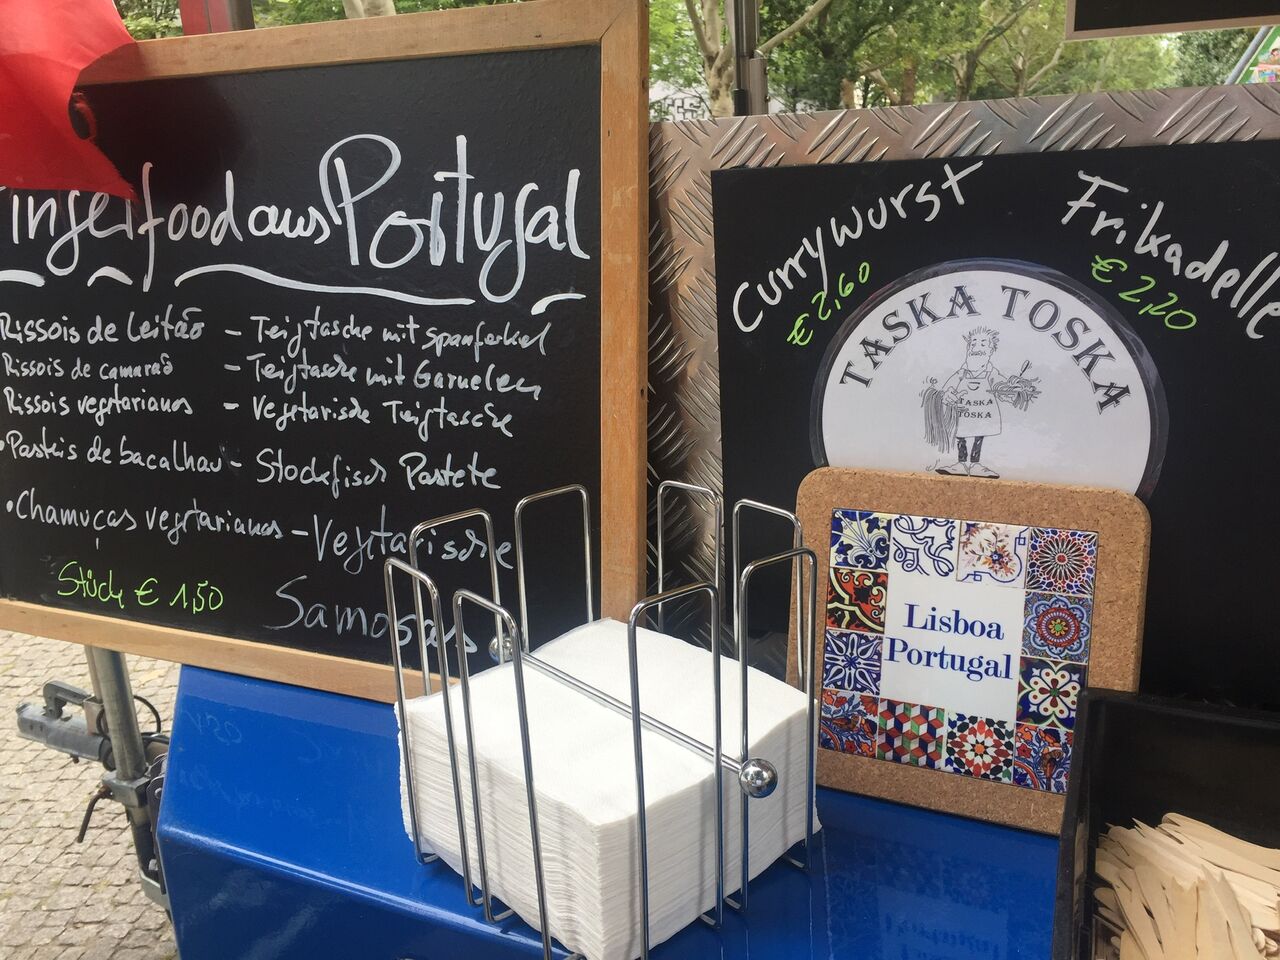 Fingerfood aus Portugal
Rissois de Leitão – Teigtasche mit Spanferkel
Rissois de camarão – Teigtasche mit Garnelen
Rissois vegetarianos – Vegetarische Teigtasche
• Pasteis de bacalhau – Stockfisch Pastete
• Chamuças vegetarianas – Vegetarische Samosas
Stück € 1,50
Currywurst
€ 2,60
Frikadelle
€ 2,20
TASKA TOSKA
TASKA
TOSKA
Lisboa
Portugal